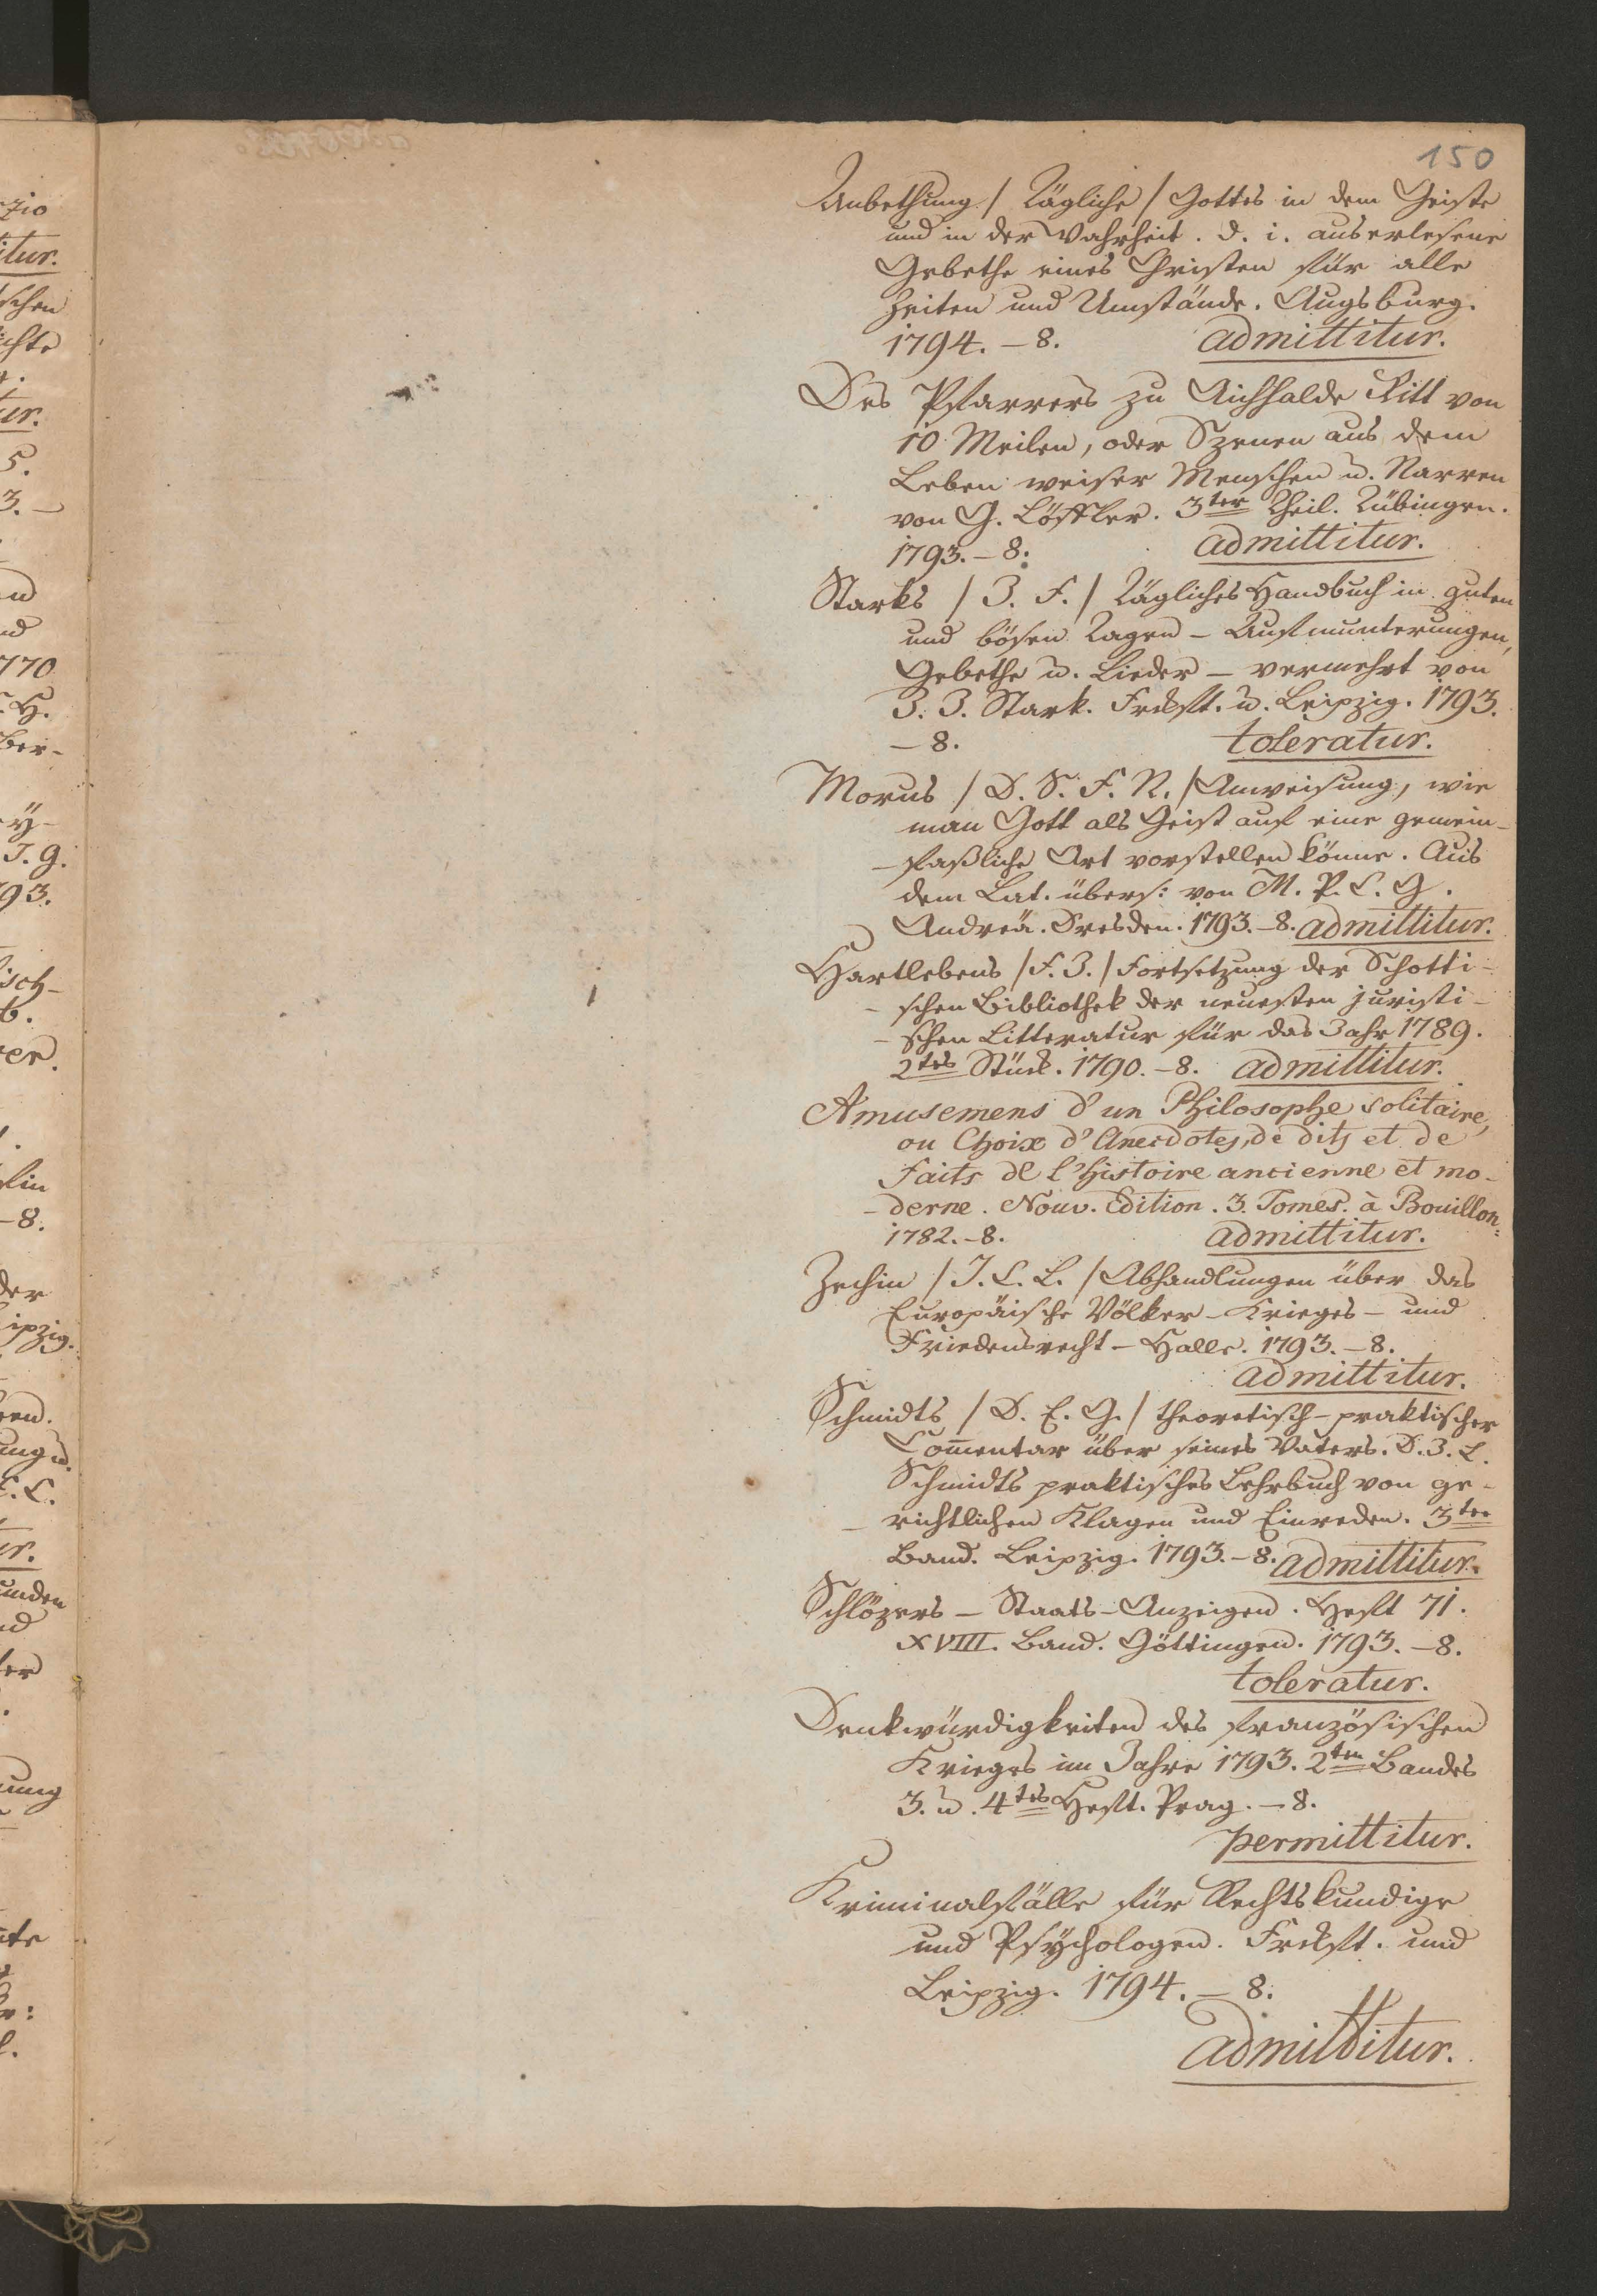 150
Anbethung / Tägliche / Gottes in dem Geiste
und in der Wahrheit. d. i. auserlesene
Gebethe eines Christen für alle
Zeiten und Umstände. Augsburg.
1794. – 8. admittitur.
Des Pfarrers zu Aichhalde Ritt von
10 Meilen, oder Szenen aus dem
Leben weiser Menschen u. Narren
von G. Löffler. 3ter Theil. Tübingen.
1793. – 8. admittitur.
Starks / J. F. / Tägliches Handbuch in guten
und bösen Tagen – Aufmunterungen,
Gebethe u. Lieder – vermehrt von
J. J. Stark. Frckft. u. Leipzig. 1793.
– 8. toleratur.
Morus / D. S. F. N. / Anweisung, wie
man Gott als Geist auf eine gemein-
-faßliche Art vorstellen könne. Aus
dem Lat. übers: von M. P. C. G.
Andreä. Dresden. 1793. – 8. admittitur.
Hartlebens / F. J. / Fortsetzung der Schotti-
- schen Bibliothek der neuesten juristi-
- schen Litteratur für das Jahr 1789.
2tes Stück. 1790. – 8. admittitur.
Amusemens d'un Philosophe solitaire,
ou Choix d'Anecdotes, de dits et de
faits de l'histoire ancienne et mo-
- derne. Nouv. Edition. 3. Tomes. à Bouillon.
1782. – 8. admittitur.
Zechin / J. C. L. / Abhandlungen über das
Europäische Völker – Krieges – und
Friedensrecht – Halle. 1793. – 8.
admittitur.
Schmidts / D. E. G. / theoretisch – praktischer
Com̄entar über seines Vaters. D. J. L.
Schmidts praktisches Lehrbuch von ge-
- richtlichen Klagen und Einreden. 3ter
Band. Leipzig. 1793. – 8. admittitur.
Schlözers – Staats – Anzeigen. Heft 71.
XVIII. Band. Göttingen. 1793. – 8.
toleratur.
Denkwürdigkeiten des französischen
Krieges im Jahre 1793. 2ten Bandes
3. u. 4tes Heft. Prag. – 8.
permittitur.
Kriminalfälle für Rechtskundige
und Psÿchologen. Frckft. und
Leipzig. 1794. – 8.
admittitur.